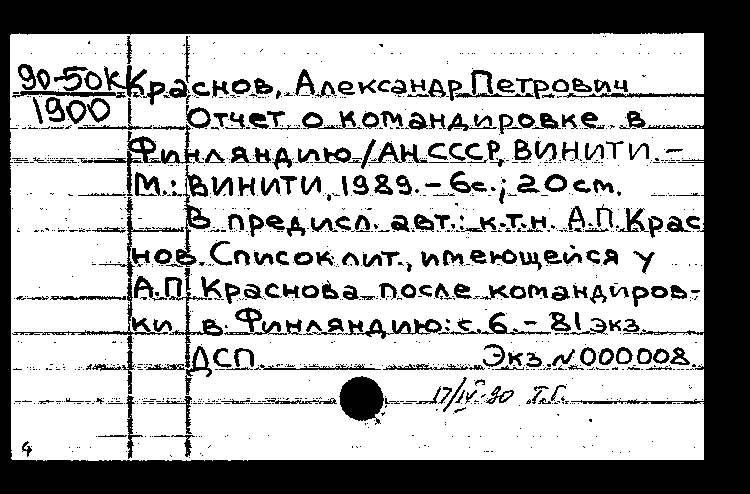 90-50К Краснов, Александр Петрович
1900 Отчет о командировке в
Финляндию / АН СССР, ВИНИТИ. -
М.: ВИНИТИ, 1989. - 6с.; 20 см.
В предисл. авт.: к.т.н. А.П. Крас
нов. Список лит., имеющейся у
А.П. Краснова после командиров-
ки в Финляндию: с. 6. - 81 экз.
ДСП. Экз. N 000008.
17/IV-90 Т.Г.